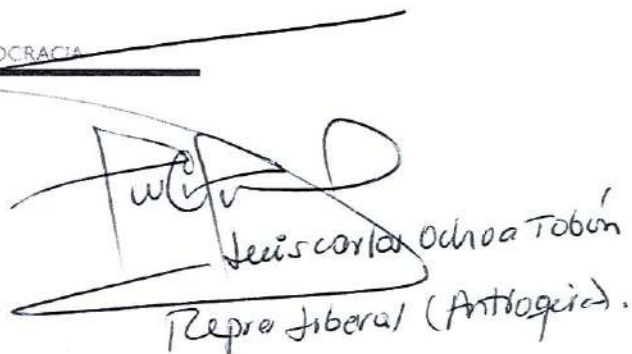 OCRACIA
Luis carlos Ochoa Tobón
Repre Liberal (Antioquia).